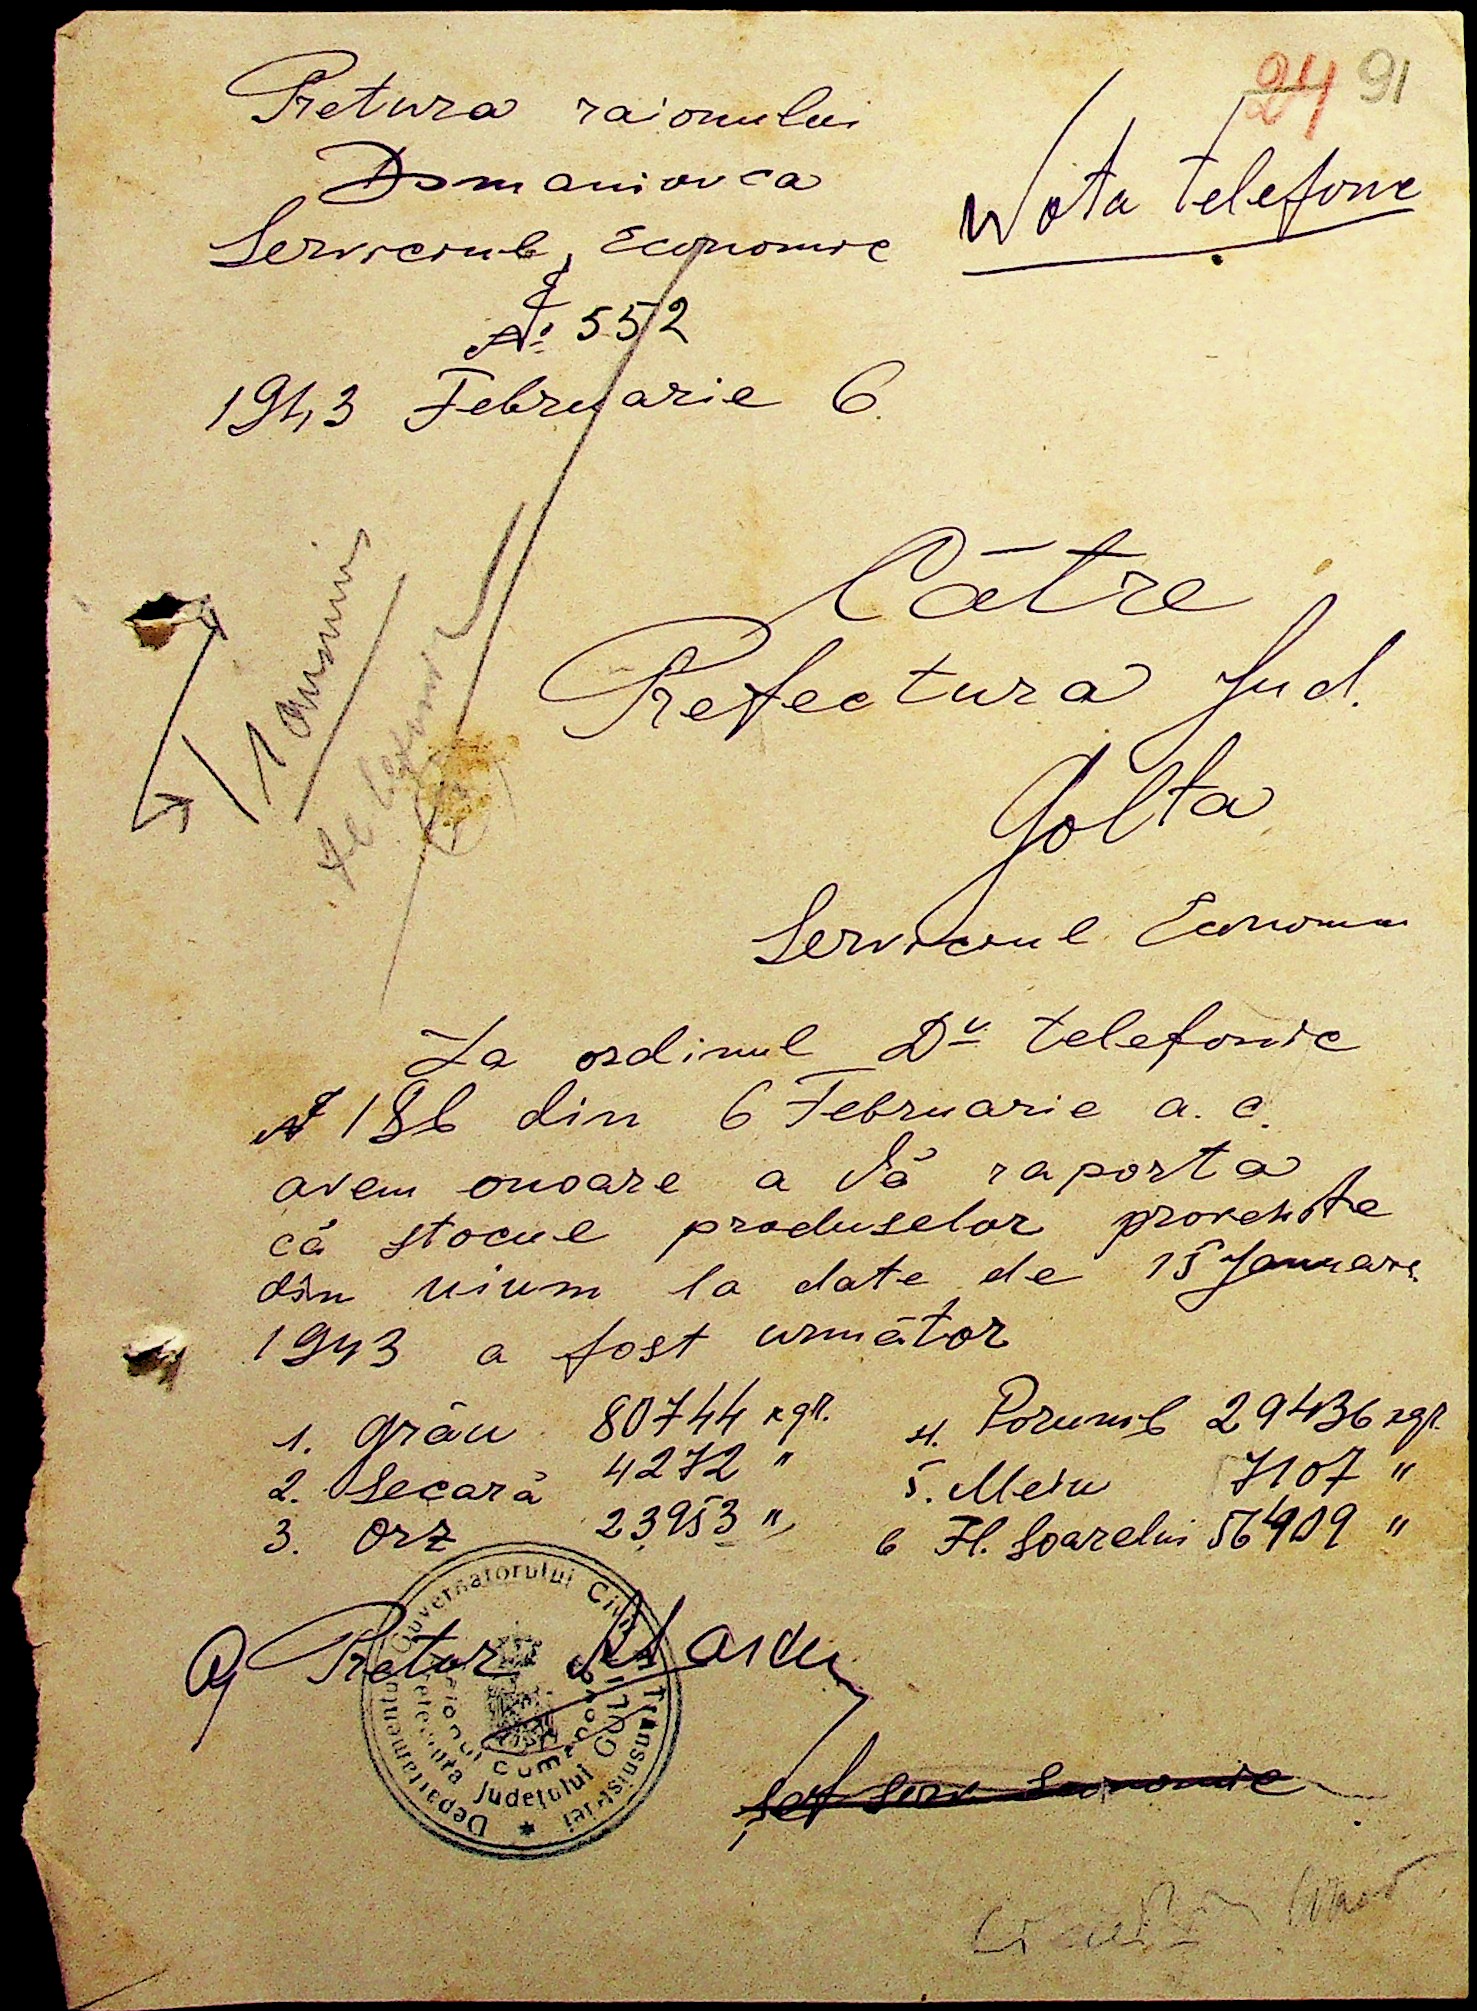 24 91
Pretura raionului
Domaniovca
Nota telefonic
Serviciul Economic
№ 552
1943 Februarie 6.
Către
Prefectura Jud.
Golta
Serviciul Economic
La ordinul Dv telefonic
№ 186 din 6 Februarie a.c.
avem onoare a Vă raporta
că stocul produselor provenite
din uium la date de 15 Januarie
1943 a fost următor
1. Grâu 80744 kgr. 4. Porumb 29436 kgr.
2. Secară 4272 " 5. Meiu 7107 "
3. Orz 23953 " 6 Fl. Soarelui 56909 "
Pretor
Departamentul Guvernatorului Civil al Transnistriei
Prefectura Județului Golta
șef serv Economic